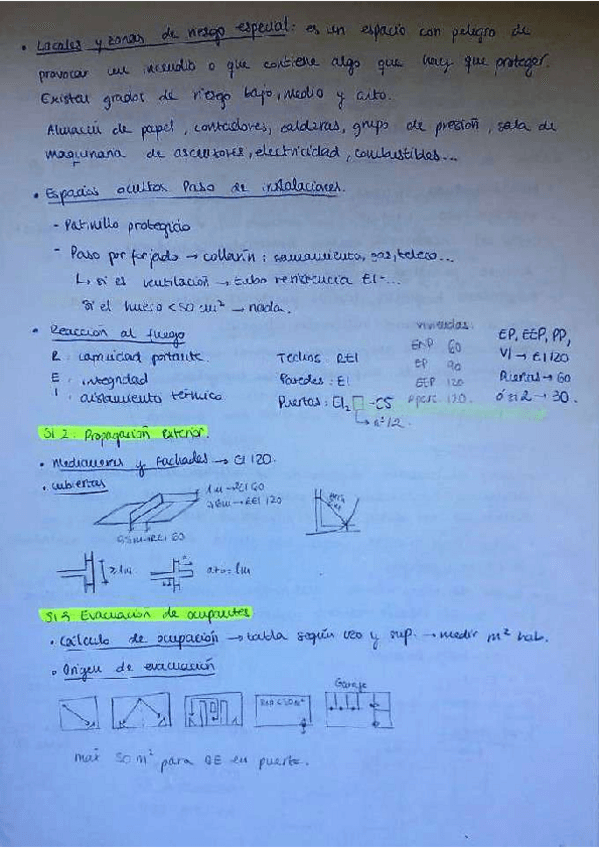 • Locales y zonas de riesgo especial: es un espacio con peligro de
provocar un incendio o que contiene algo que hay que proteger.
Existen grados de riesgo bajo, medio y alto.
Almacén de papel, contadores, calderas, grupo de presión, sala de
maquinaria de ascensores, electricidad, combustibles...
• Espacios ocultos. Paso de instalaciones.
- Patinillo protegido
- Paso por forjado → collarín: saneamiento, gas, teleco...
↳ si es ventilación → tubo resistencia EI-...
Si el hueco < 50 cm² → nada.
• Reacción al fuego
R: capacidad portante
E: integridad
I: aislamiento térmico
Techos: REI
Paredes: EI
Puertas: EI2 □ -C5
↳ nº/2.
viviendas:
60
EP 90
EEP 120
120.
EP, EEP, PP,
VI → EI 120
→ 60
ó si 2 → 30.
SI 2. Propagación exterior.
• Medianeras y Fachadas → EI 120.
• cubiertas
1m → REI 60
→ REI 120
REI 60
≥1m
alto = 1m
SI 3 Evacuación de ocupantes
• Cálculo de ocupación → tabla según uso y sup. → medir m² hab.
• Origen de evacuación
Garaje
max 50 m² para OE en puerta.